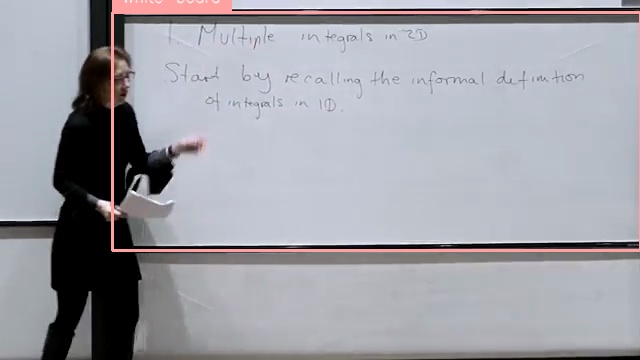 white board
1. Multiple integrals in 2D
Start by recalling the informal definition
of integrals in 1D.